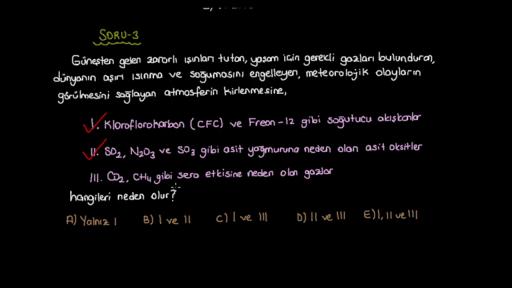 SORU-3
Güneşten gelen zararlı ışınları tutan, yaşam için gerekli gazları bulunduran,
dünyanın aşırı ısınma ve soğumasını engelleyen, meteorolojik olayların
görülmesini sağlayan atmosferin kirlenmesine,
I. Kloroflorokarbon (CFC) ve Freon-12 gibi soğutucu akışkanlar
II. SO2, N2O3 ve SO3 gibi asit yağmuruna neden olan asit oksitler
III. CO2, CH4 gibi sera etkisine neden olan gazlar
hangileri neden olur?
A) Yalnız I B) I ve II C) I ve III D) II ve III E) I, II ve III